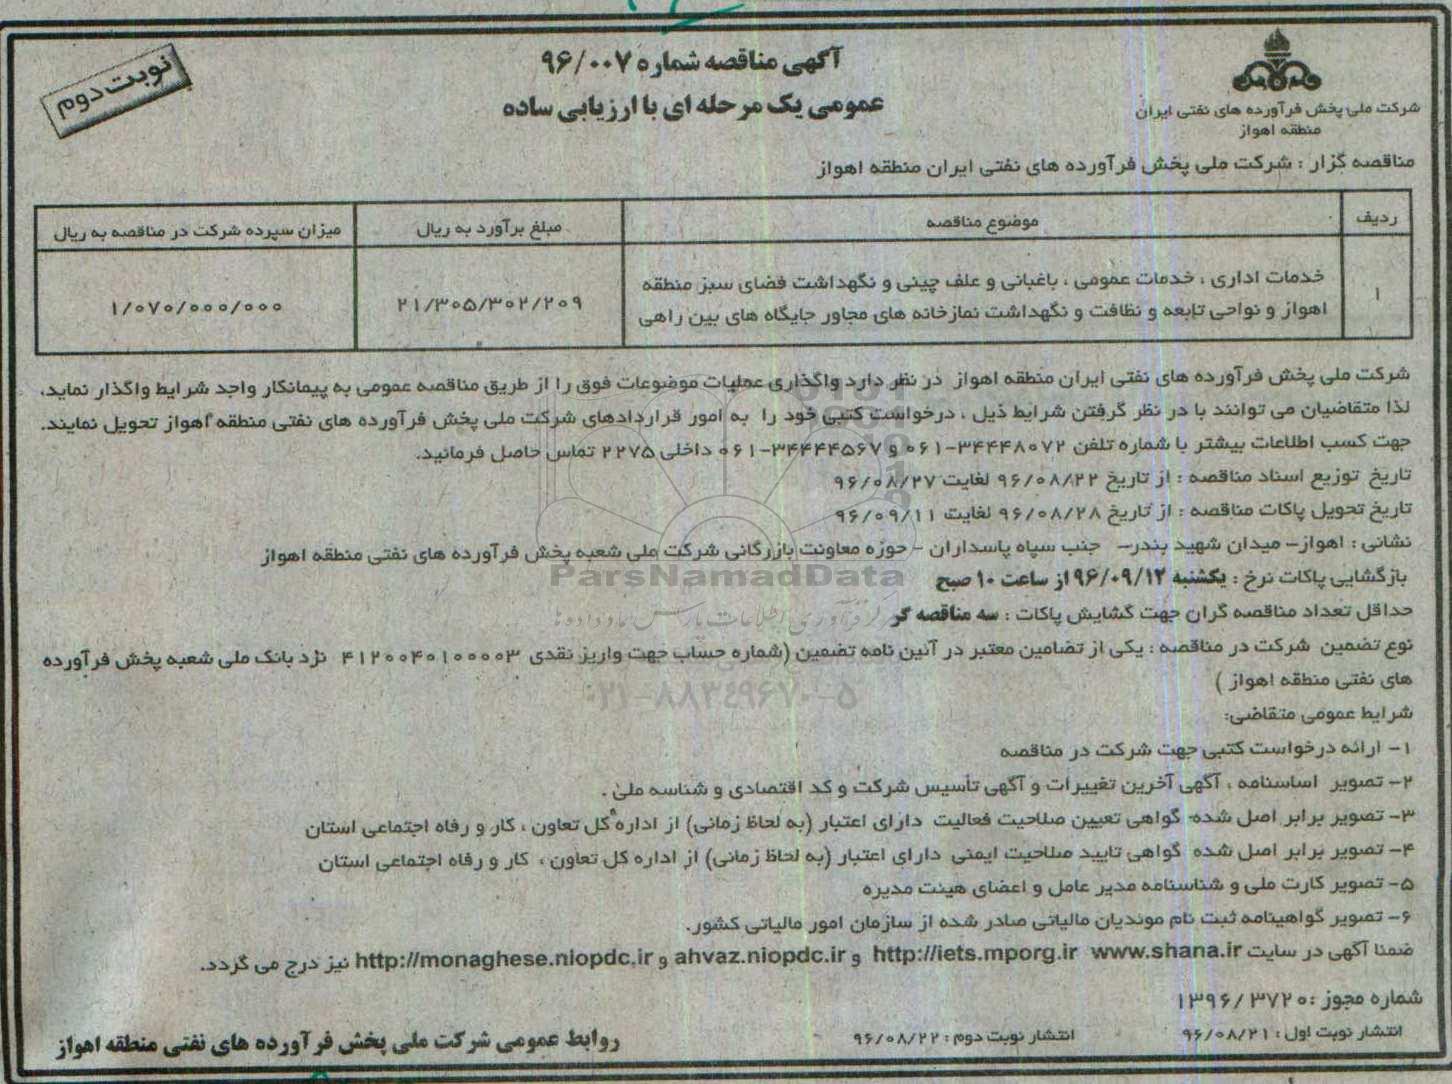 نوبت دوم
آگهی مناقصه شماره ۹۶/۰۰۷
عمومی یک مرحله ای با ارزیابی ساده
شرکت ملی پخش فرآورده های نفتی ایران
منطقه اهواز
مناقصه گزار : شرکت ملی پخش فرآورده های نفتی ایران منطقه اهواز
ردیف موضوع مناقصه مبلغ برآورد به ریال میزان سپرده شرکت در مناقصه به ریال
۱ خدمات اداری ، خدمات عمومی ، باغبانی و علف چینی و نگهداشت فضای سبز منطقه
اهواز و نواحی تابعه و نظافت و نگهداشت نمازخانه های مجاور جایگاه های بین راهی ۲۱/۳۰۵/۳۰۲/۲۰۹ ۱/۰۷۰/۰۰۰/۰۰۰
شرکت ملی پخش فرآورده های نفتی ایران منطقه اهواز در نظر دارد واگذاری عملیات موضوعات فوق را از طریق مناقصه عمومی به پیمانکار واجد شرایط واگذار نماید.
لذا متقاضیان می توانند با در نظر گرفتن شرایط ذیل ، درخواست کتبی خود را به امور قراردادهای شرکت ملی پخش فرآورده های نفتی منطقه اهواز تحویل نمایند.
جهت کسب اطلاعات بیشتر با شماره تلفن ۳۴۴۴۸۰۷۲-۰۶۱ و ۳۴۴۴۴۵۶۷-۰۶۱ داخلی ۲۲۷۵ تماس حاصل فرمائید.
تاریخ توزیع اسناد مناقصه : از تاریخ ۹۶/۰۸/۲۲ لغایت ۹۶/۰۸/۲۷
تاریخ تحویل پاکات مناقصه : از تاریخ ۹۶/۰۸/۲۸ لغایت ۹۶/۰۹/۱۱
نشانی : اهواز- میدان شهید بندر- جنب سپاه پاسداران - حوزه معاونت بازرگانی شرکت ملی شعبه پخش فرآورده های نفتی منطقه اهواز
بازگشایی پاکات نرخ : یکشنبه ۹۶/۰۹/۱۲ از ساعت ۱۰ صبح
ParsNamadData
حداقل تعداد مناقصه گران جهت گشایش پاکات : سه مناقصه گر
نوع تضمین شرکت در مناقصه : یکی از تضامین معتبر در آئین نامه تضمین (شماره حساب جهت واریز نقدی ۴۱۲۰۰۴۰۱۰۰۰۰۳ نزد بانک ملی شعبه پخش فرآورده
های نفتی منطقه اهواز )
۰۲۱-۸۸۳۴۹۶۷۰-۵
شرایط عمومی متقاضی:
۱- ارائه درخواست کتبی جهت شرکت در مناقصه
۲- تصویر اساسنامه ، آگهی آخرین تغییرات و آگهی تأسیس شرکت و کد اقتصادی و شناسه ملی .
۳- تصویر برابر اصل شده گواهی تعیین صلاحیت فعالیت دارای اعتبار (به لحاظ زمانی) از اداره کل تعاون ، کار و رفاه اجتماعی استان
۴- تصویر برابر اصل شده گواهی تایید صلاحیت ایمنی دارای اعتبار (به لحاظ زمانی) از اداره کل تعاون ، کار و رفاه اجتماعی استان
۵- تصویر کارت ملی و شناسنامه مدیر عامل و اعضای هیئت مدیره
۶- تصویر گواهینامه ثبت نام موندیان مالیاتی صادر شده از سازمان امور مالیاتی کشور.
ضمنا آگهی در سایت http://iets.mporg.ir www.shana.ir و ahvaz.niopdc.ir و http://monaghese.niopdc.ir نیز درج می گردد.
شماره مجوز : ۱۳۹۶/۳۷۲۰
انتشار نوبت اول : ۹۶/۰۸/۲۱ انتشار نوبت دوم : ۹۶/۰۸/۲۲
روابط عمومی شرکت ملی پخش فرآورده های نفتی منطقه اهواز